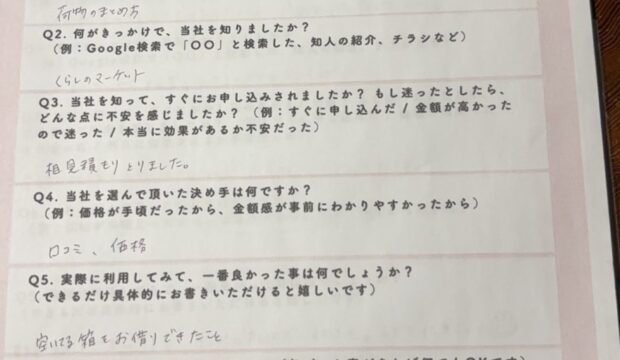 荷物のまとめ方
Q2. 何がきっかけで、当社を知りましたか？
（例：Google検索で「〇〇」と検索した、知人の紹介、チラシなど）
くらしのマーケット
Q3. 当社を知って、すぐにお申し込みされましたか？ もし迷ったとしたら、
どんな点に不安を感じましたか？ （例：すぐに申し込んだ / 金額が高かった
ので迷った / 本当に効果があるか不安だった）
相見積もりとりました。
Q4. 当社を選んで頂いた決め手は何ですか？
（例：価格が手頃だったから、金額感が事前にわかりやすかったから）
口コミ、価格
Q5. 実際に利用してみて、一番良かった事は何でしょうか？
（できるだけ具体的にお書きいただけると嬉しいです）
空いてる箱をお借りできたこと